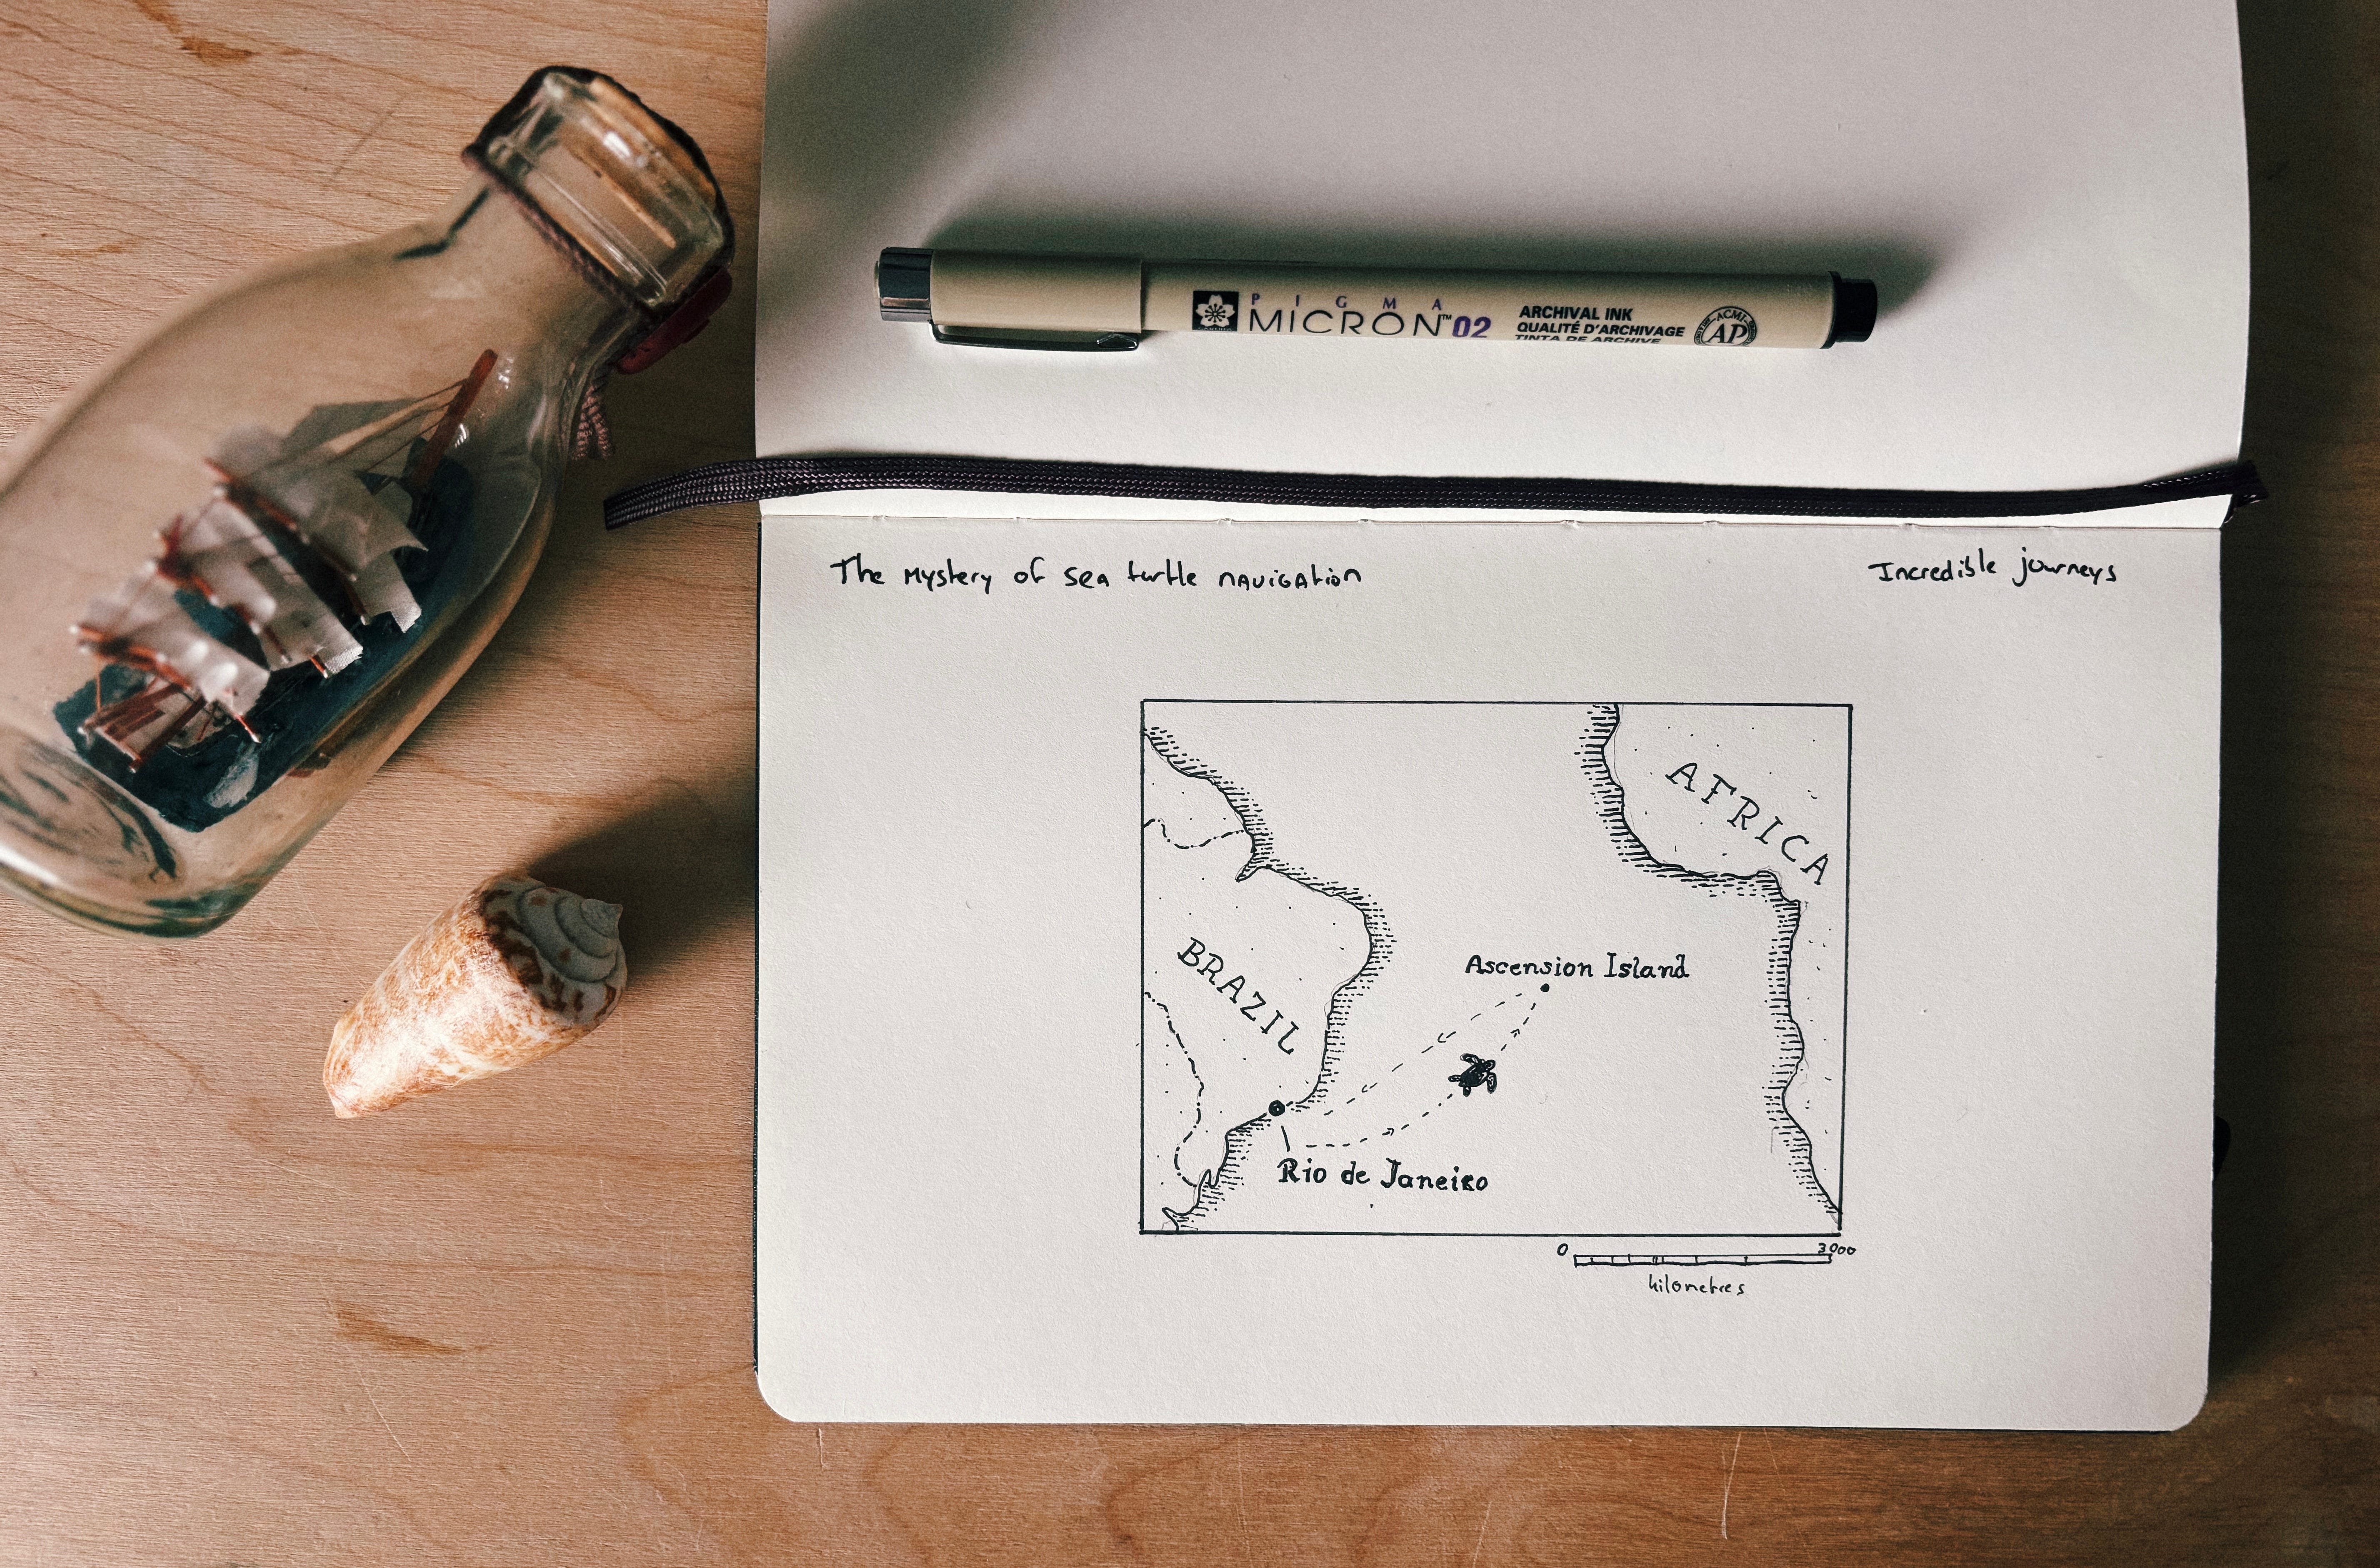 PIGMA
MICRON™ 02
ARCHIVAL INK
QUALITÉ D'ARCHIVAGE
TINTA DE ARCHIVE
ACMI
AP
The mystery of sea turtle navigation
Incredible journeys
AFRICA
BRAZIL
Ascension Island
Rio de Janeiro
0 3000
kilometres